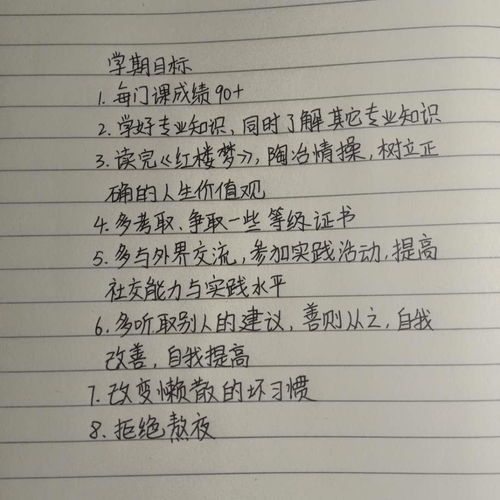 学期目标
1. 每门课成绩90+
2. 学好专业知识,同时了解其它专业知识
3. 读完《红楼梦》,陶冶情操,树立正
确的人生价值观
4. 多考取、争取一些等级证书
5. 多与外界交流,参加实践活动,提高
社交能力与实践水平
6. 多听取别人的建议,善则从之,自我
改善,自我提高
7. 改变懒散的坏习惯
8. 拒绝熬夜